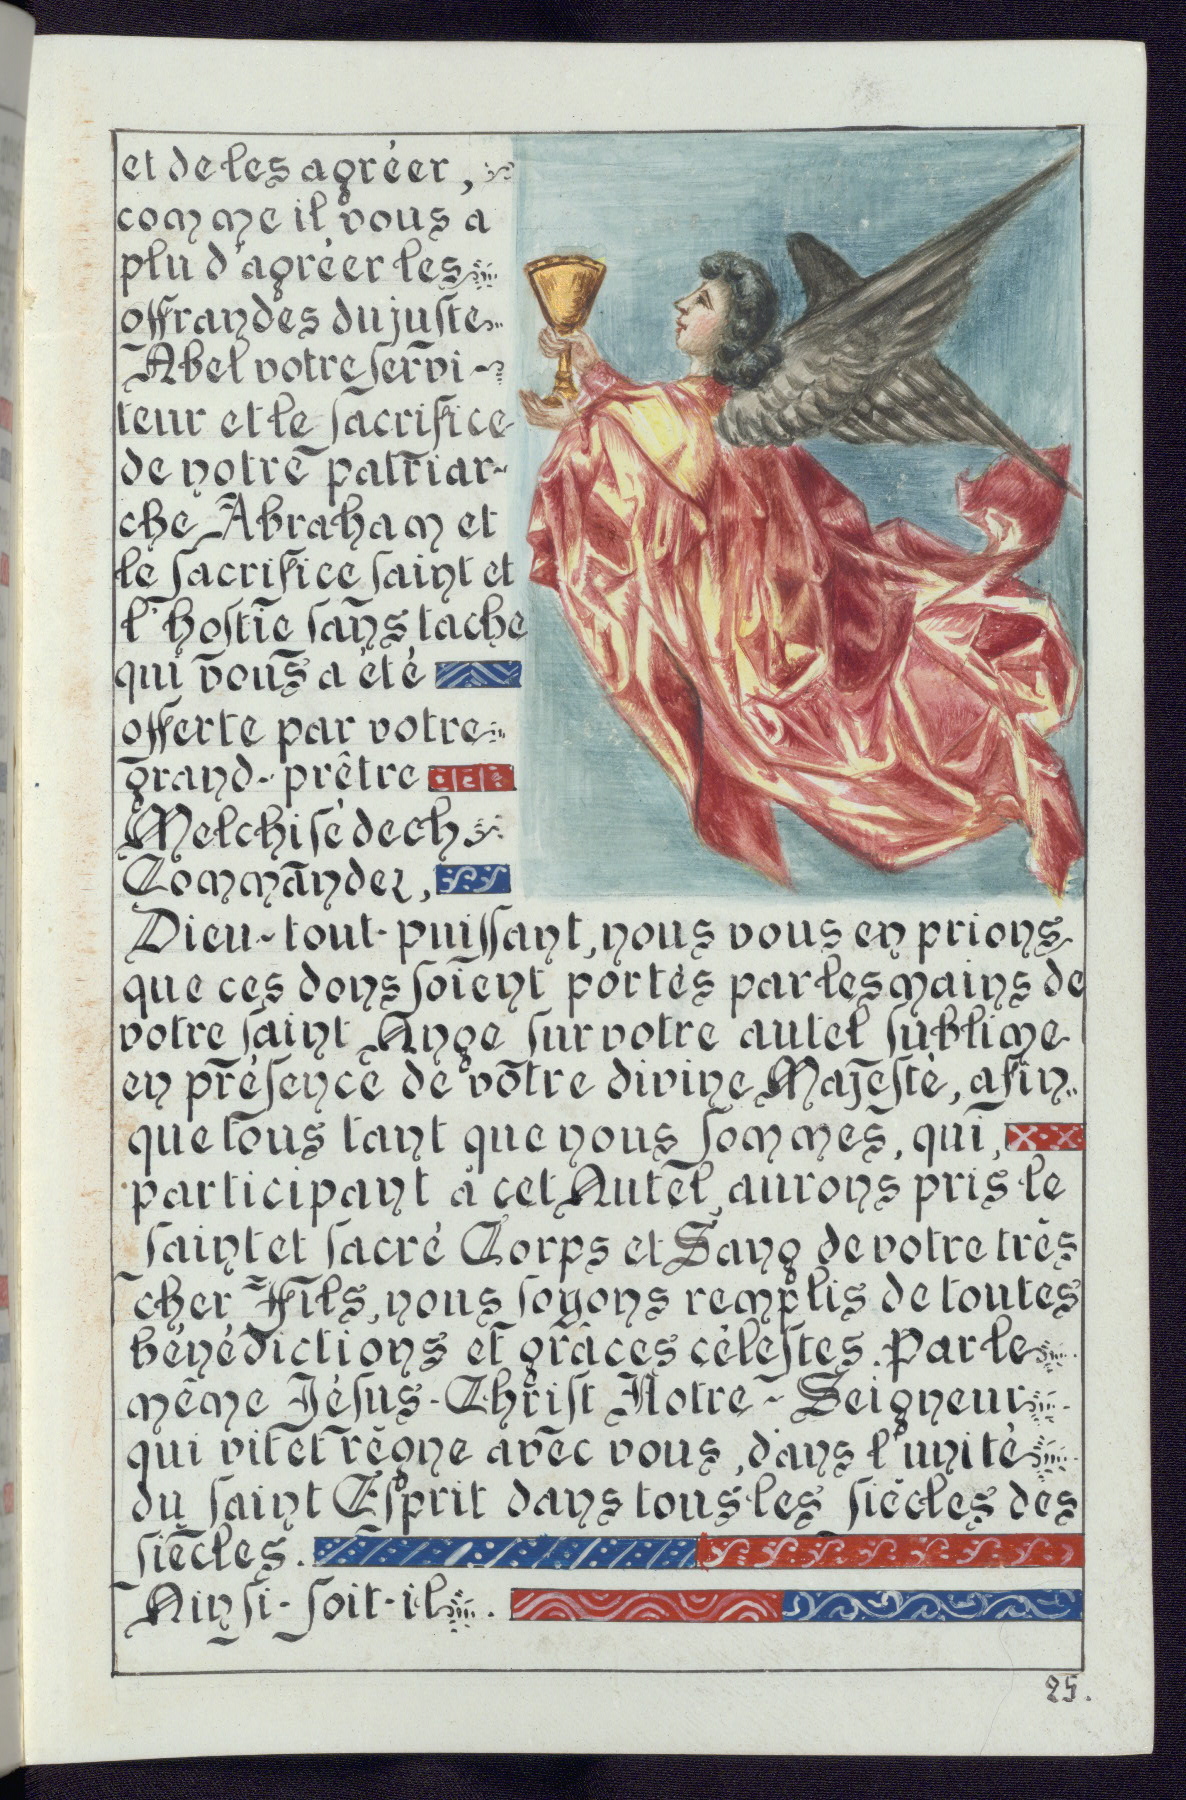 et de les agréer,
comme il vous a
plu d'agréer les
offrandes du juste
Abel votre servi-
teur et le sacrifice
de notre patriar-
che Abraham et
le sacrifice saint et
l'hostie sans tache
qui vous a été
offerte par votre
grand-prêtre
Melchisédech
Commandez,
Dieu-tout-puissant, nous vous en prions
que ces dons soient portés par les mains de
votre saint Ange sur votre autel sublime
en présence de votre divine Majesté, afin
que tous tant que nous sommes, qui,
participant à cet Autel, aurons pris le
saint et sacré Corps et Sang de votre très
cher Fils, nous soyons remplis de toutes
bénédictions et grâces célestes. Par le
même Jésus-Christ Notre-Seigneur
qui vit et règne avec vous, dans l'unité
du saint Esprit dans tous les siècles des
siècles.
Ainsi-soit-il.
25.